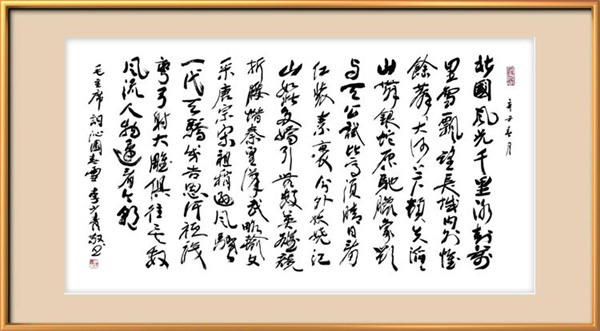 北國風光千里冰封萬
里雪飄望長城內外惟
餘莽莽大河上下頓失滔滔
山舞銀蛇原馳蠟象欲
與天公試比高須晴日看
紅裝素裹分外妖嬈江
山如此多嬌引無數英雄競
折腰惜秦皇漢武略輸文
采唐宗宋祖稍遜風騷
一代天驕成吉思汗祗識
彎弓射大雕俱往矣數
風流人物還看今朝
毛主席詞沁園春雪 李少青敬書
辛丑春月